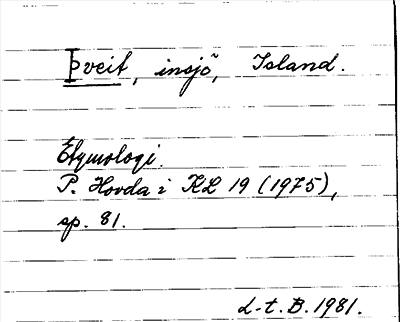 Þveit, insjö, Island.
Etymologi.
P. Hovda i KL 19 (1975),
sp. 81.
L-t. B. 1981.